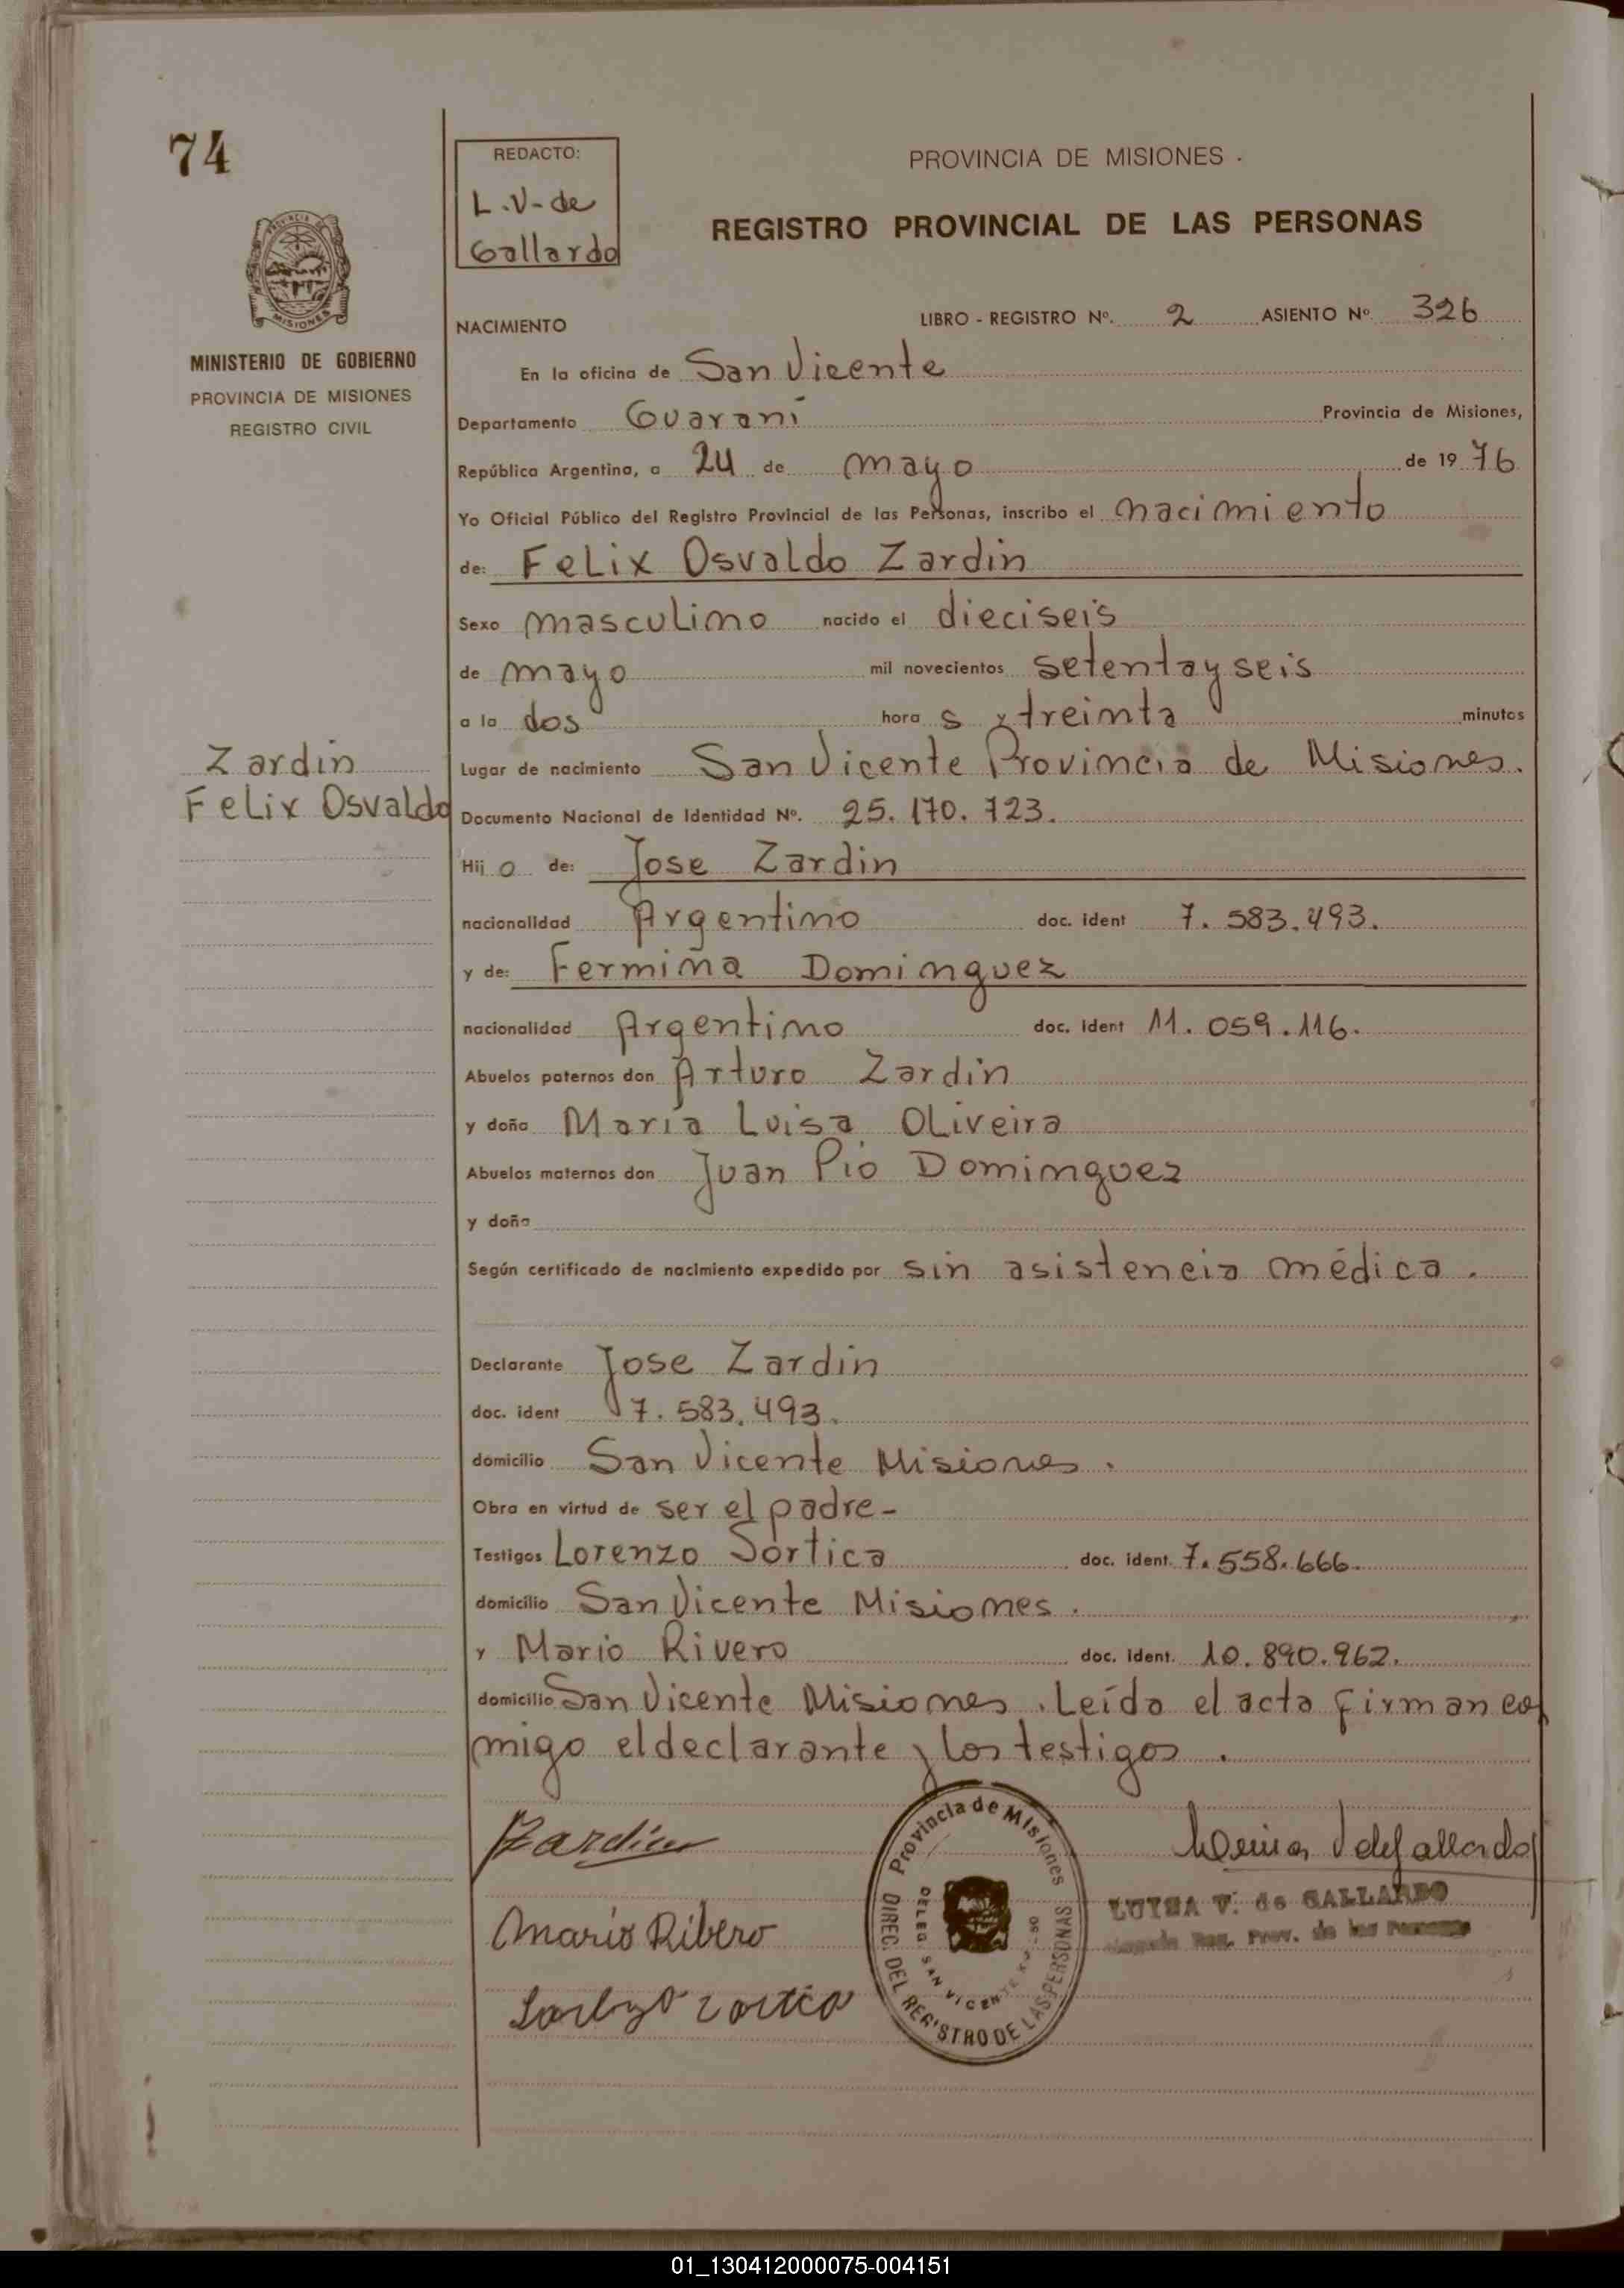 74
REDACTO:
L.V-de
Gallardo
PROVINCIA DE MISIONES.
REGISTRO PROVINCIAL DE LAS PERSONAS
PROVINCIA DE
MISIONES
MINISTERIO DE GOBIERNO
PROVINCIA DE MISIONES
REGISTRO CIVIL
NACIMIENTO
LIBRO - REGISTRO Nº. 2 ASIENTO Nº 326
En la oficina de San Vicente
Departamento Guarani Provincia de Misiones,
República Argentina, a 24 de mayo de 19 76
Yo Oficial Público del Registro Provincial de las Personas, inscribo el nacimiento
de: Felix Osvaldo Zardin
Sexo masculino nacido el dieciseis
de mayo mil novecientos setentayseis
a la dos hora s y treinta minutos
Zardin
Felix Osvaldo
Lugar de nacimiento San Vicente Provincia de Misiones.
Documento Nacional de Identidad Nº. 25.170.723.
Hij o de: Jose Zardin
nacionalidad Argentino doc. ident 7.583.493.
y de: Fermina Dominguez
nacionalidad Argentino doc. ident 11.059.116.
Abuelos paternos don Arturo Zardin
y doña María Luisa Oliveira
Abuelos maternos don Juan Pio Dominguez
y doña
Según certificado de nacimiento expedido por sin asistencia médica.
Declarante Jose Zardin
doc. ident 7.583.493.
domicilio San Vicente Misiones.
Obra en virtud de ser el padre-
Testigos Lorenzo Sortica doc. ident. 7.558.666.
domicilio San Vicente Misiones.
y Mario Rivero doc. ident. 10.890.962.
domicilio San Vicente Misiones. Leído el acta firman con
migo el declarante y los testigos.
Zardin
Mario Ribero
Provincia de Misiones
DIREC. DEL REGISTRO DE LAS PERSONAS
DELEG. SAN VICENTE
V de Gallardo
LUISA V. de GALLARDO
Reg. Prov. de las Personas
01_130412000075-004151